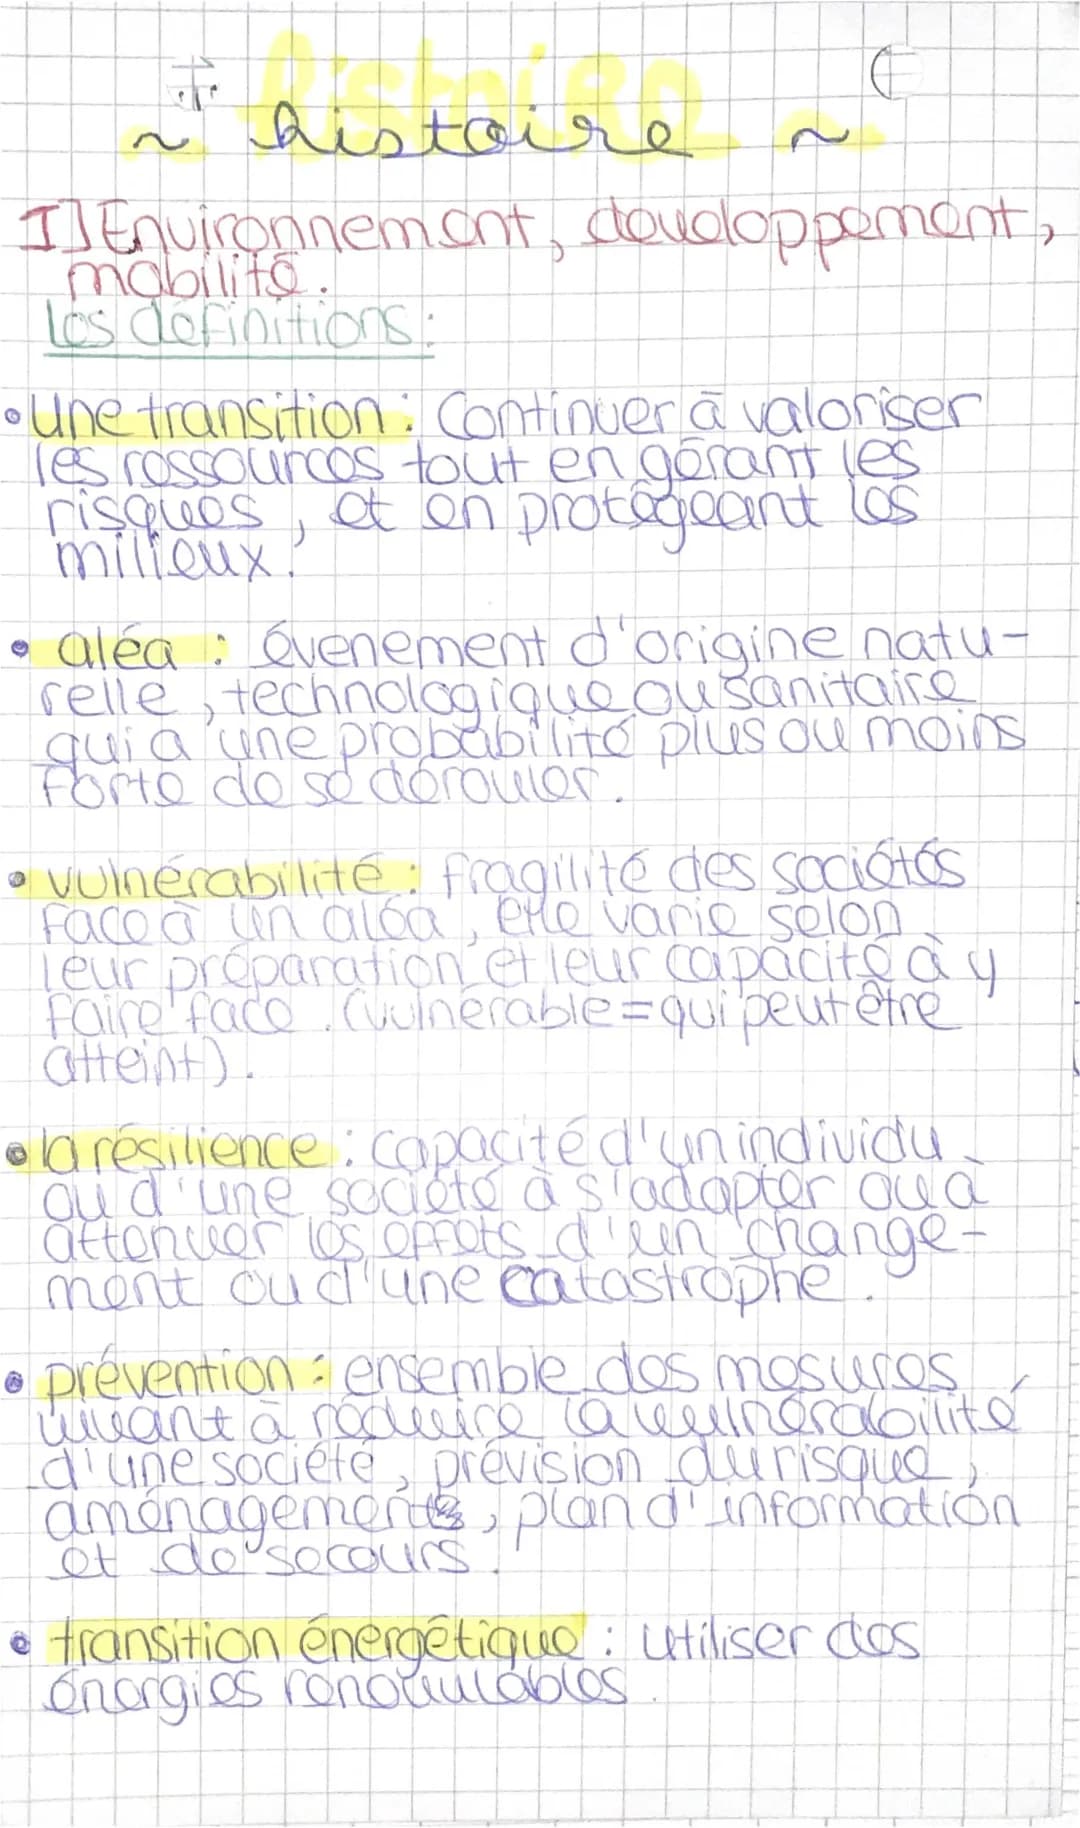 histoire
~ histoire ~
I] Environnement, développement,
mobilité.
Les définitions :
• Une transition : Continuer à valoriser
les ressources tout en gérant les
risques, et en protégeant les
milieux.
• aléa : évenement d'origine natu-
relle, technologique ou sanitaire
qui a une probabilité plus ou moins
forte de se dérouler.
• vulnérabilité : fragilité des sociétés
face à un aléa, elle varie selon
leur préparation et leur capacité à y
faire face. (vulnérable = qui peut être
atteint).
• la résilience : capacité d'un individu
ou d'une société à s'adapter ou à
attenuer les effets d'un change-
ment ou d'une catastrophe.
• prévention : ensemble des mesures
vivant à réduire la vulnérabilité
d'une société, prévision du risque,
aménagements, plan d'information
et de secours.
• transition énergétique : utiliser des
énergies renouvulables.